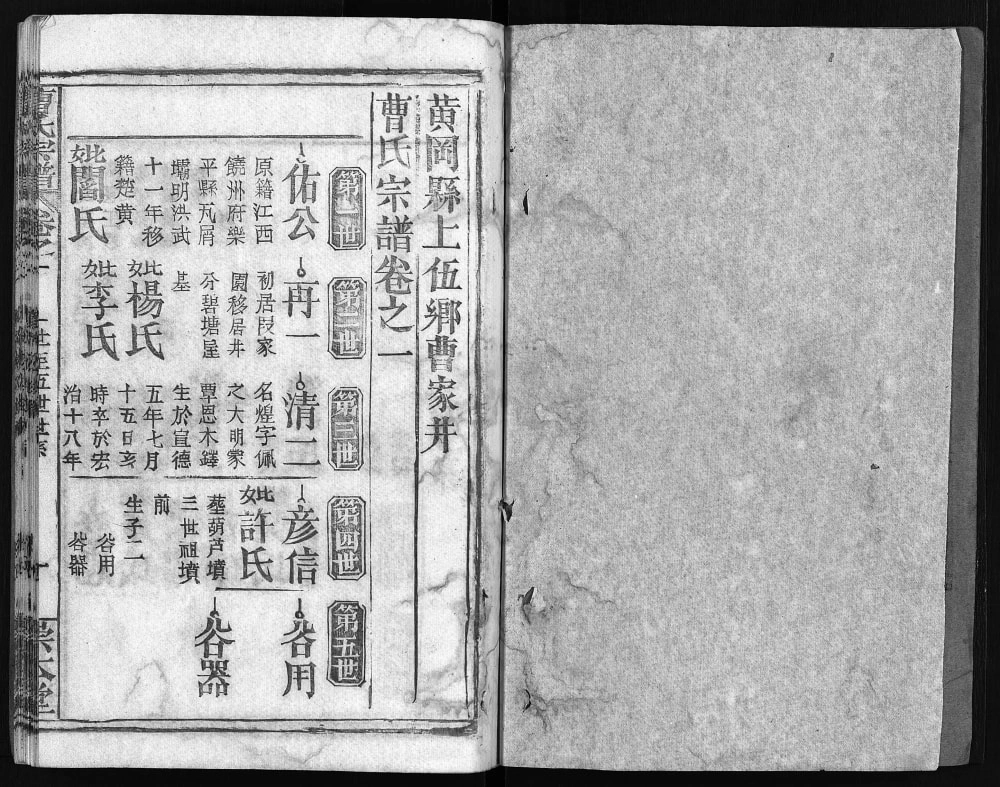 黄岡縣上伍鄉曹家井
曹氏宗譜卷之一
第一世
佑公
原籍江西
饒州府樂
平縣瓦屑
壩明洪武
十一年移
籍楚黄
妣閻氏
第二世
再一
初居段家
園移居井
分碧塘屋
基
妣楊氏
妣李氏
第三世
清二
名煌字佩
之大明蒙
覃恩木鐸
生於宣德
五年七月
十五日亥
時卒於宏
治十八年
第四世
彦信
妣許氏
塟葫芦墳
三世祖墳
前
生子二
谷用
谷器
第五世
谷用
谷器
曹氏宗譜
卷之一
一世至五世世系
一
崇本堂